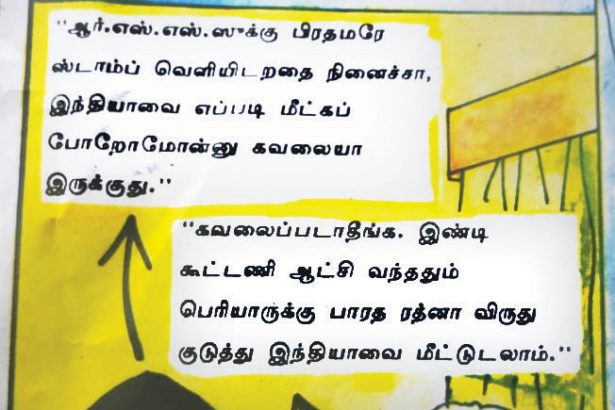 "ஆர்.எஸ்.எஸ்.ஸுக்கு பிரதமரே
ஸ்டாம்ப் வெளியிடறதை நினைச்சா,
இந்தியாவை எப்படி மீட்கப்
போறோமோன்னு கவலையா
இருக்குது."
"கவலைப்படாதீங்க. இண்டி
கூட்டணி ஆட்சி வந்ததும்
பெரியாருக்கு பாரத ரத்னா விருது
குடுத்து இந்தியாவை மீட்டுடலாம்."